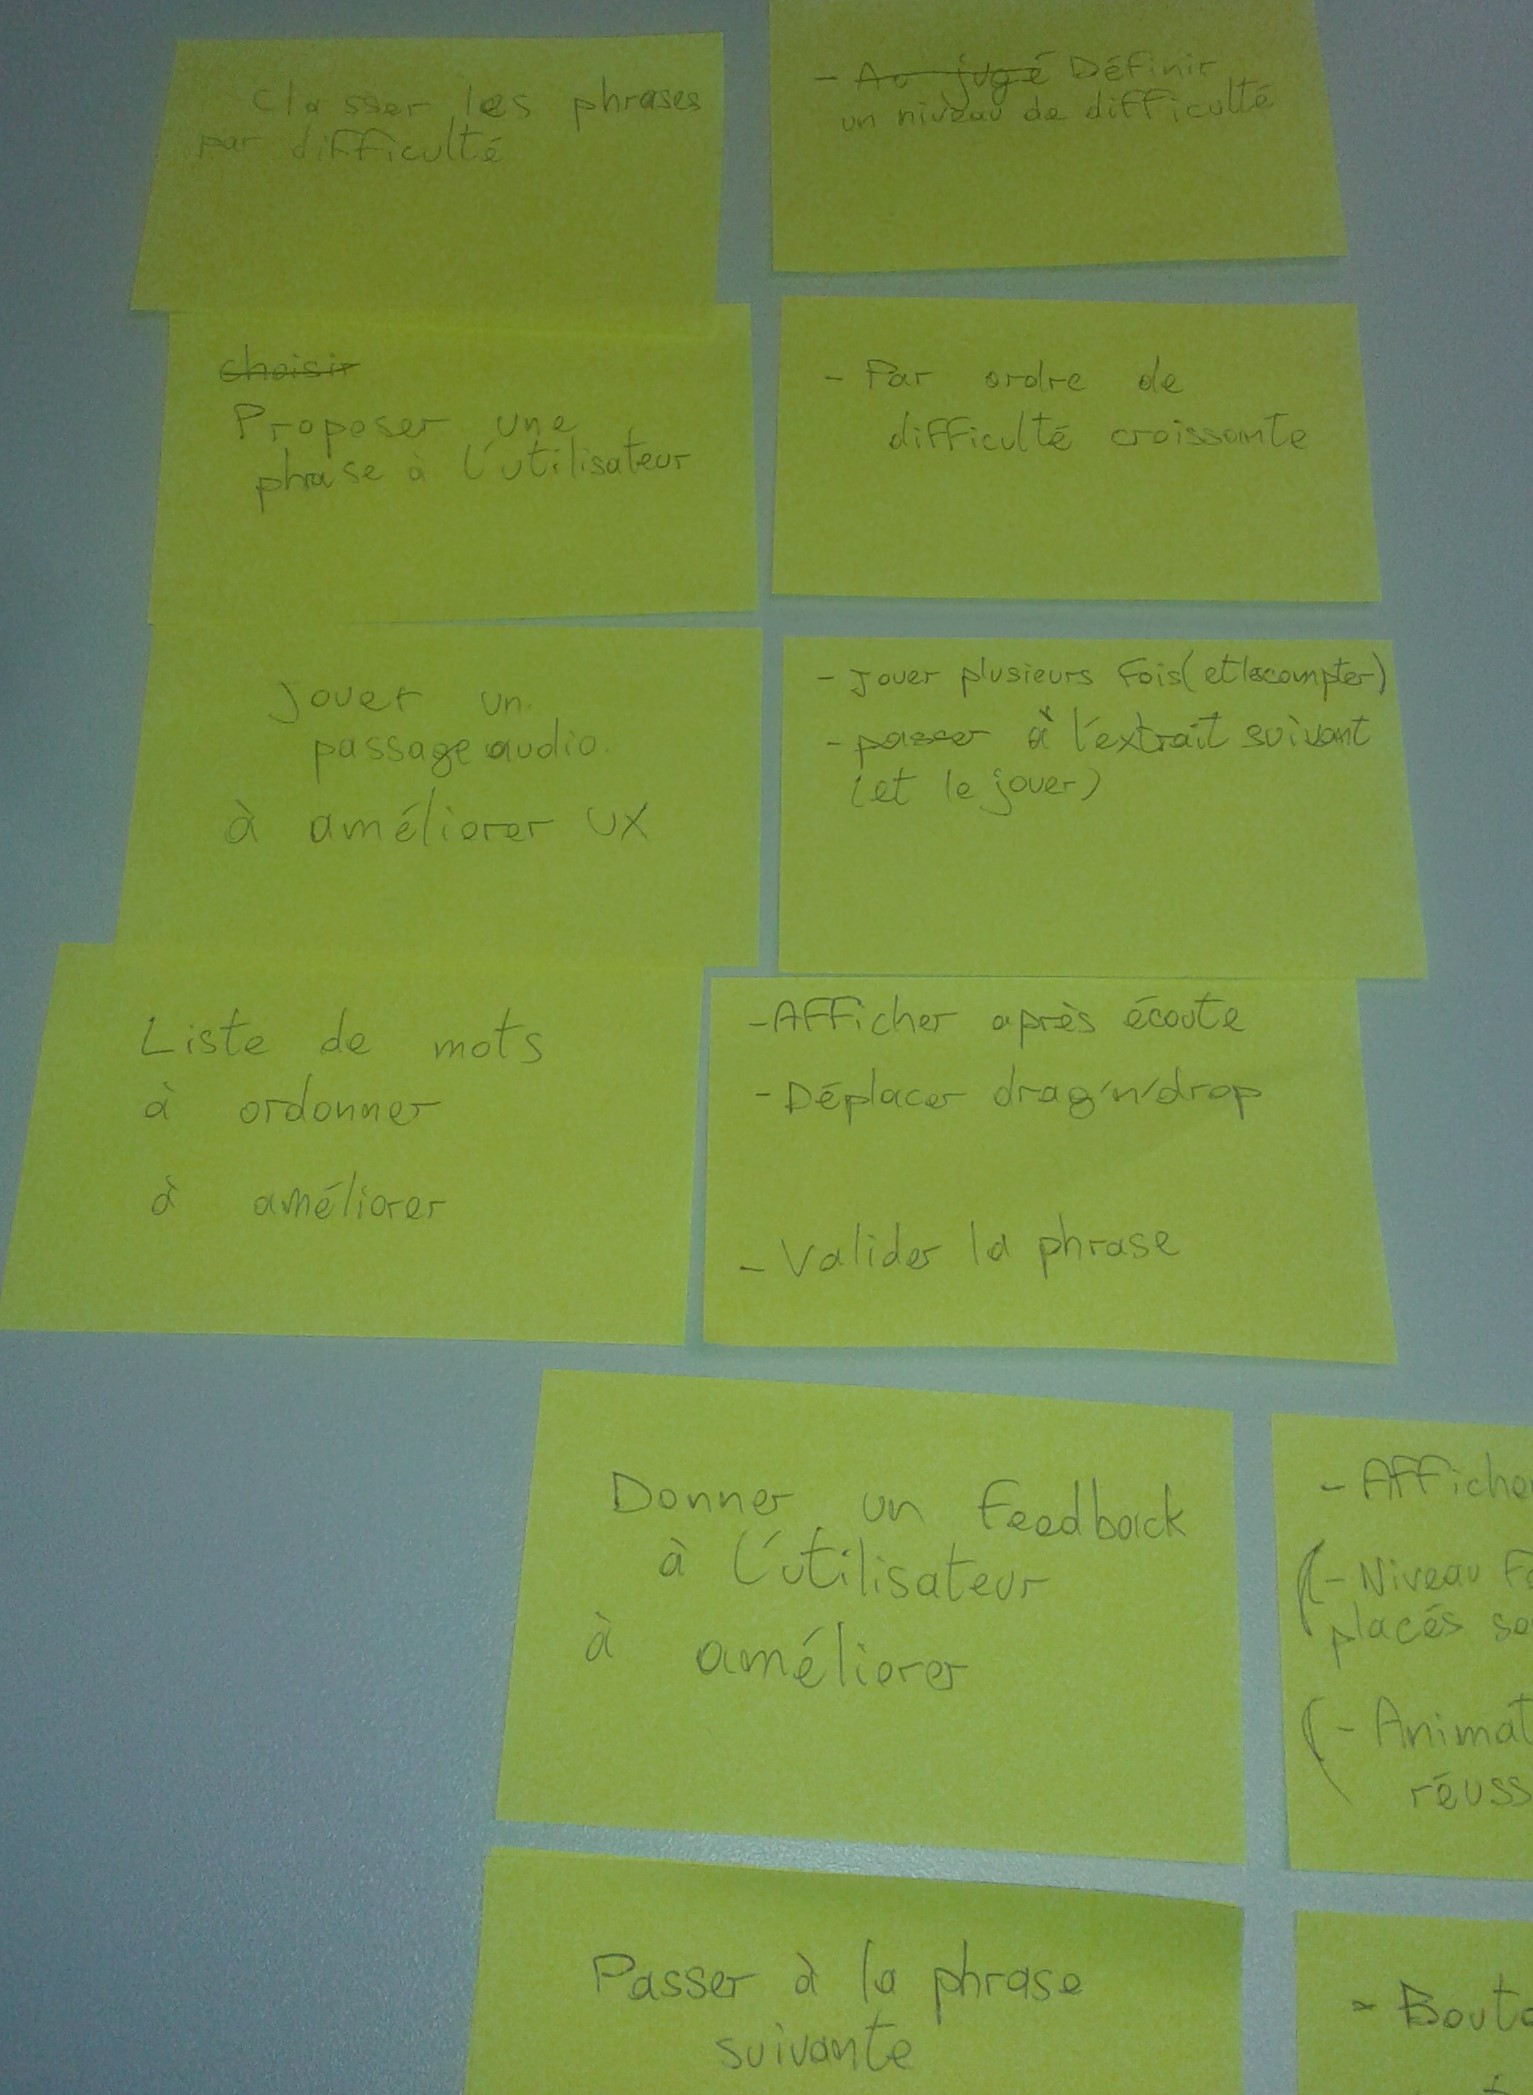 Classer les phrases
par difficulté
- Au jugé Définir
un niveau de difficulté
choisir
Proposer une
phrase à l'utilisateur
- Par ordre de
difficulté croissante
Jouer un
passage audio.
à améliorer UX
- Jouer plusieurs fois (et les compter)
- passer à l'extrait suivant
(et le jouer)
Liste de mots
à ordonner
à améliorer
- Afficher après écoute
- Déplacer drag'n'drop
- Valider la phrase
Donner un feedback
à l'utilisateur
à améliorer
- Affiche
(- Niveau
placés
(- Animat
réuss
Passer à la phrase
suivante
- Bouto